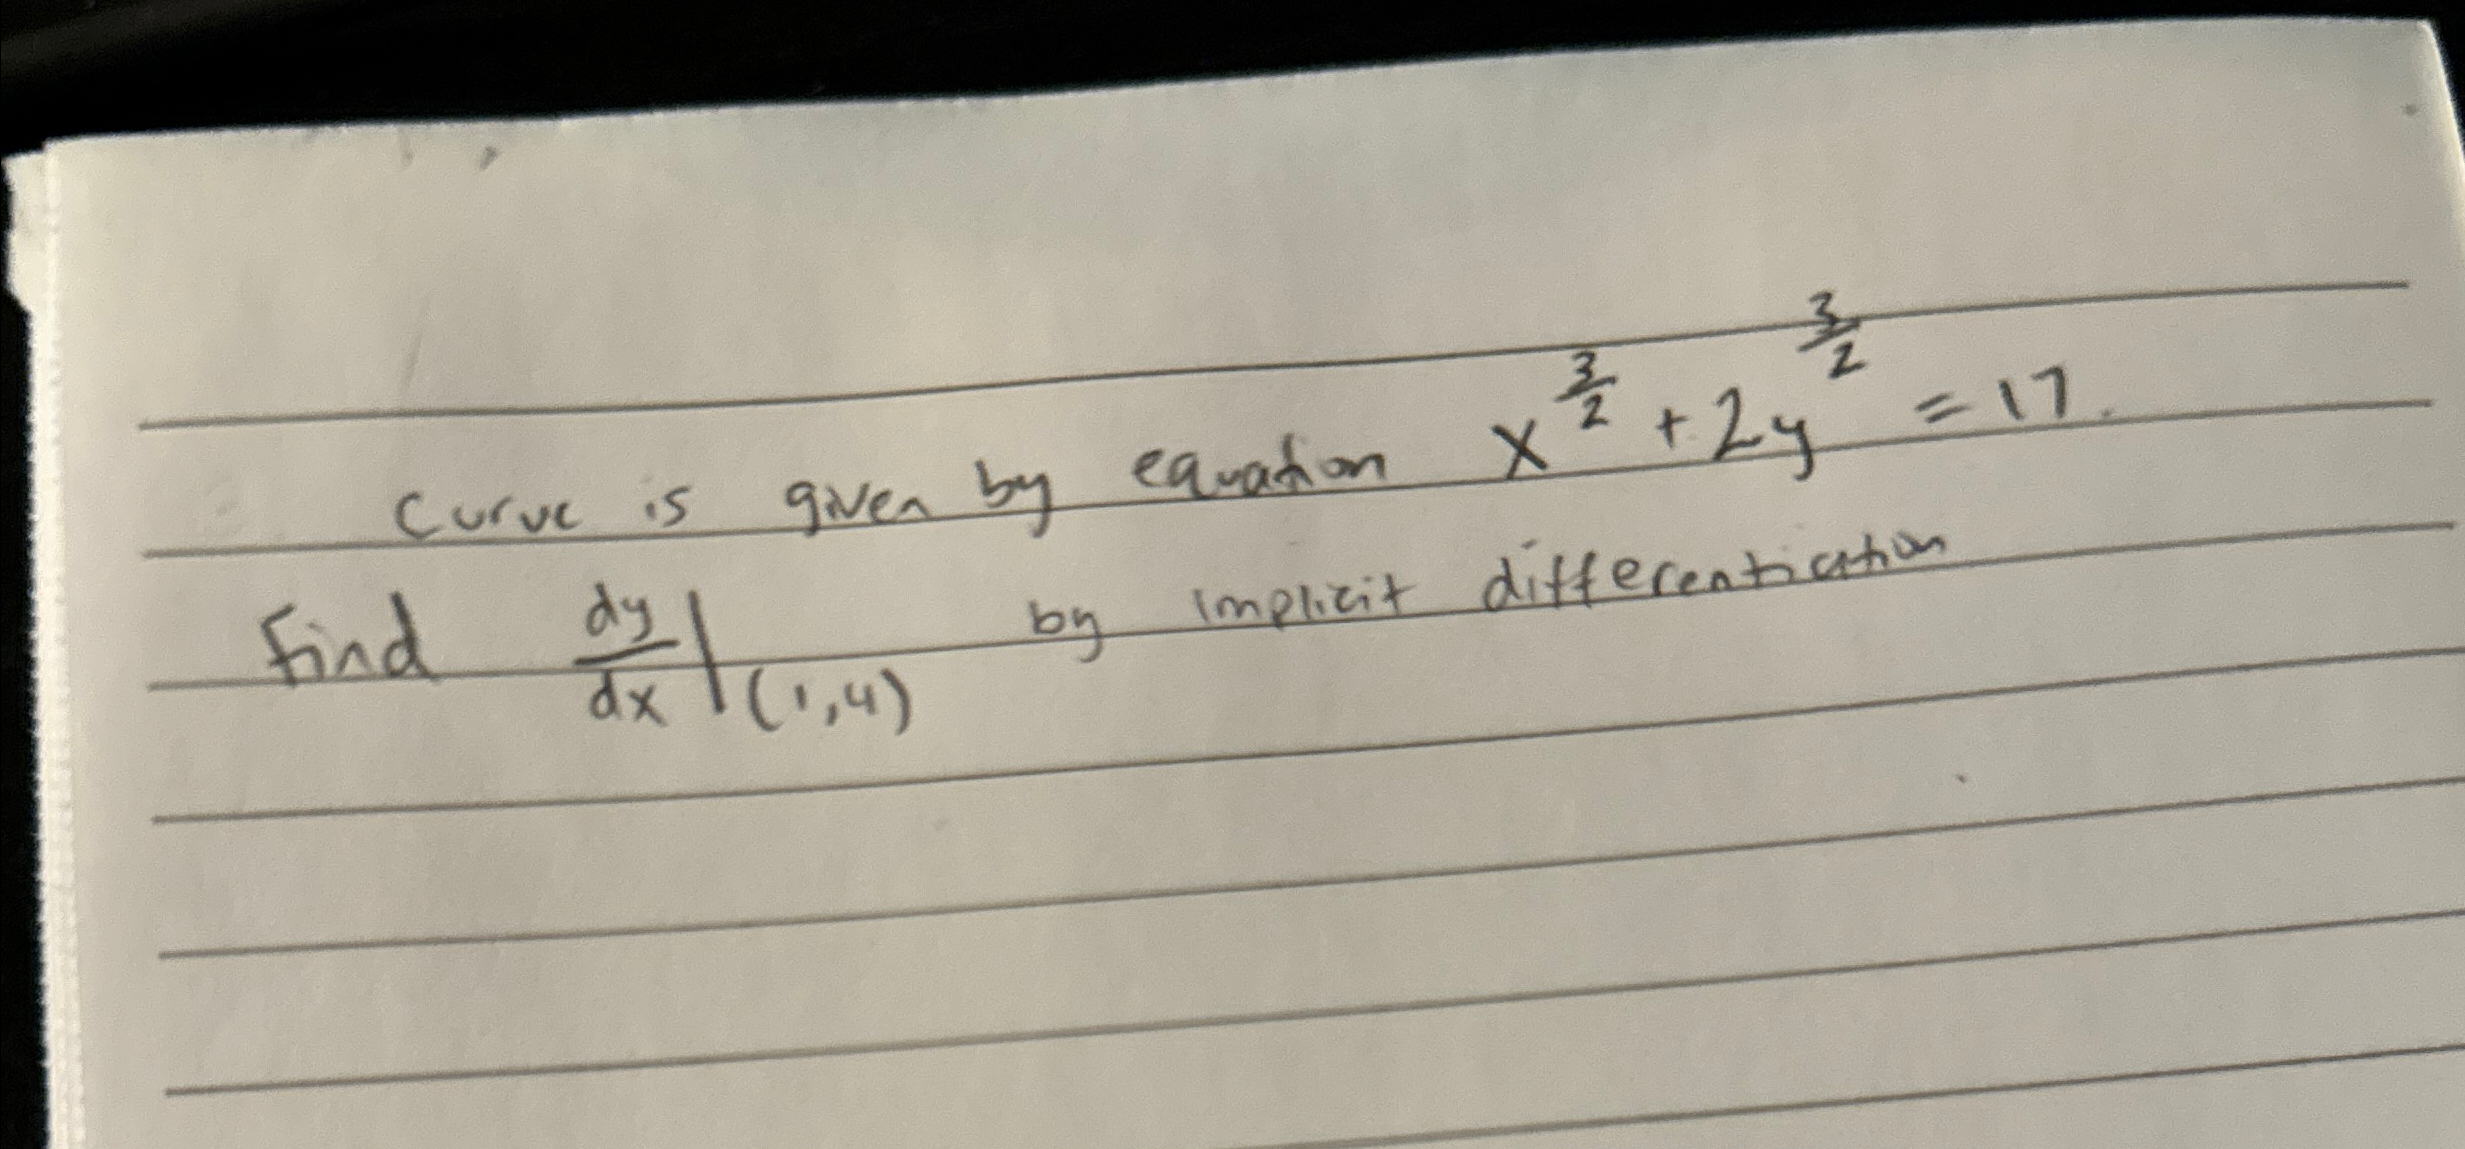 Curve is given by equation x^{3/2} + 2y^{3/2} = 17.
Find dy/dx |(1,4) by implicit differentiation